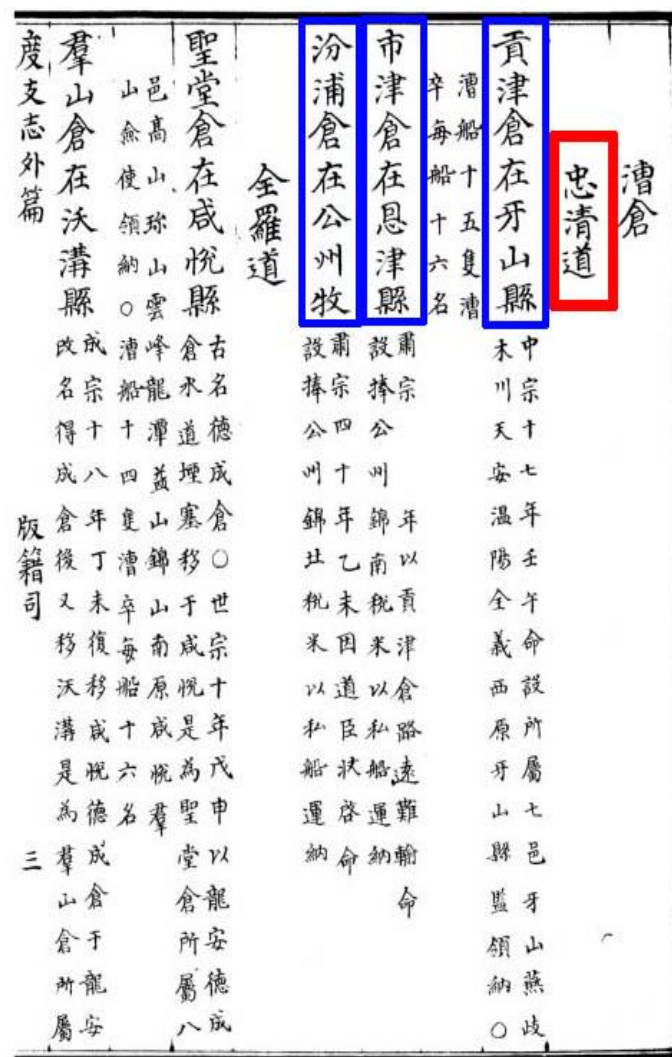 漕倉
忠清道
貢津倉在牙山縣
中宗十七年壬午命設所屬七邑牙山燕歧
木川天安溫陽全義西原牙山縣監領納○
漕船十五隻漕
卒每船十六名
市津倉在恩津縣
肅宗 年以貢津倉路遠難輸命
設捧公州錦南稅米以私船運納
汾浦倉在公州牧
肅宗四十年乙未因道臣狀啓命
設捧公州錦北稅米以私船運納
全羅道
聖堂倉在咸悅縣
古名德成倉○世宗十年戊申以龍安德成
倉水道堙塞移于咸悅是為聖堂倉所屬八
邑高山珎山雲峰龍潭益山錦山南原咸悅羣
山僉使領納○漕船十四隻漕卒每船十六名
羣山倉在沃溝縣
成宗十八年丁未復移咸悅德成倉于龍安
改名得成倉後又移沃溝是為羣山倉所屬
度支志外篇 版籍司 三